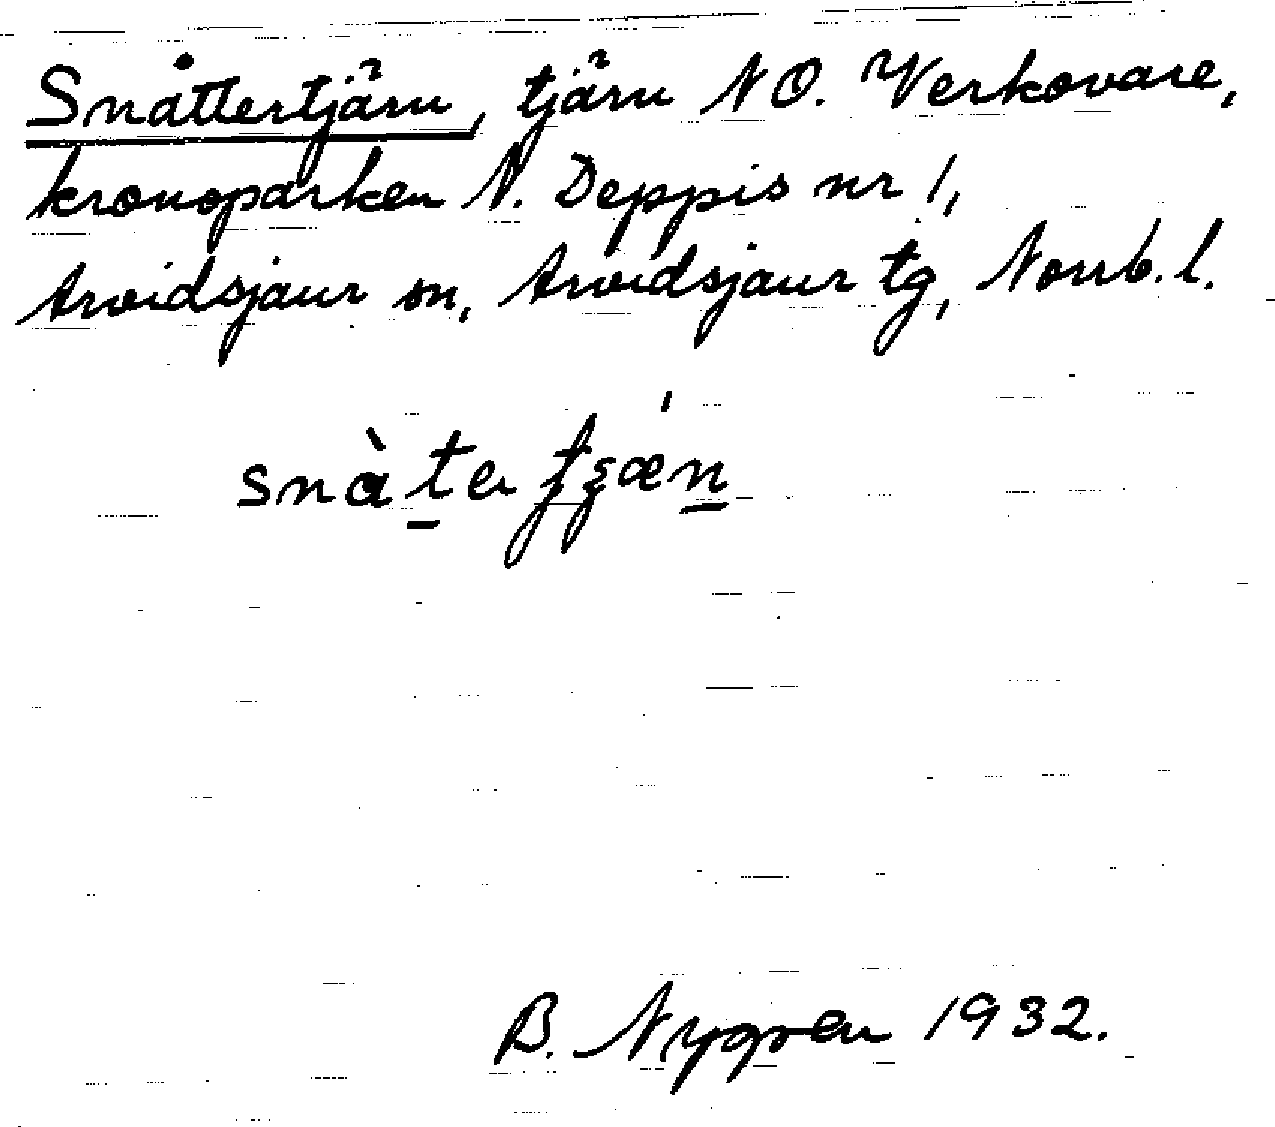 Snåttertjärn, tjärn NO. Verkovare,
kronoparken N. Deppis nr 1,
Arvidsjaur sn, Arvidsjaur tg, Norrb. l.
B. Nygren 1932.